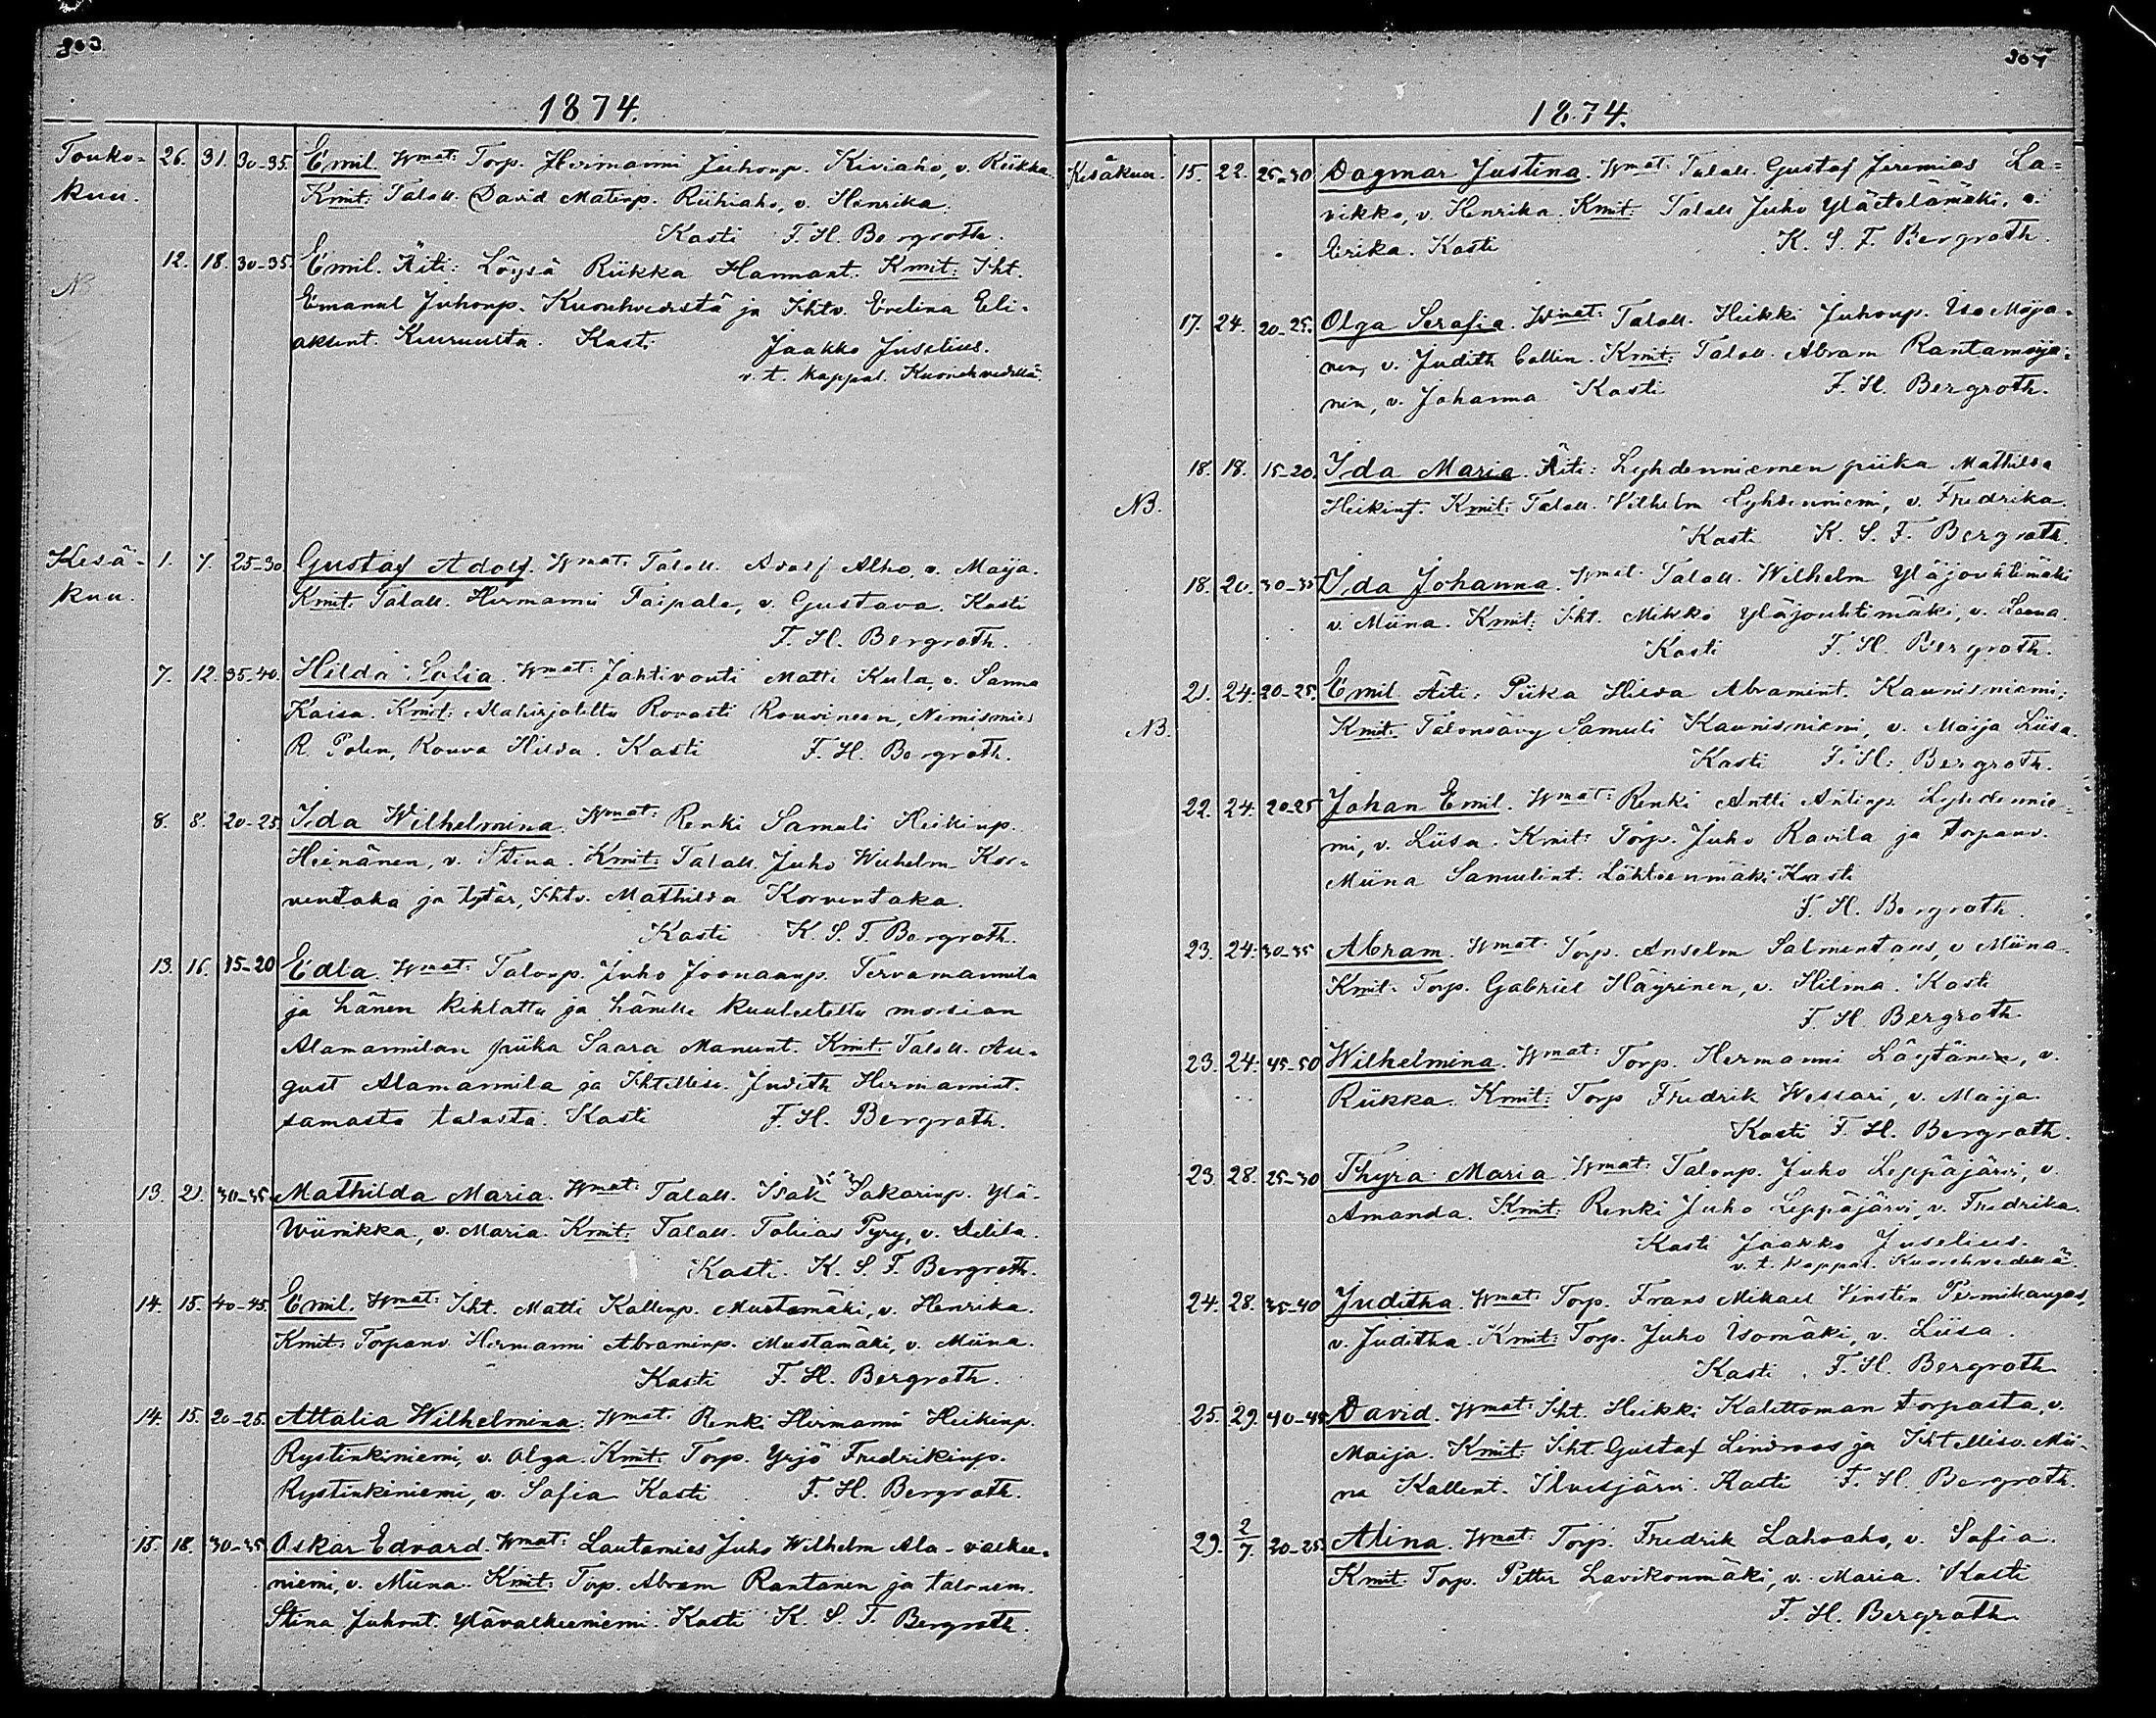 303
1874.
Touko- 26. 31. 30-35. Emil. Wmat: Torp. Hermanni Juhonp. Kiviaho, v. Riikka.
kuu. Kmit: Talall. David Matinp. Riihiaho, v. Henrika.
Kasti F. H. Bergroth.
NB 12. 18. 30-35. Emil. Äiti: Löysä Riikka Hermant. Kmit: Iht.
Emanul Juhonp. Kuorehvedeltä ja Ihtv. Evelina Eli-
aksent. Keuruulta. Kasti Jaakko Juselius.
v. t. Kappal. Kuorehvedellä.
Kesä- 1. 7. 25-30 Gustaf Adolf. Wmat: Talall. Adolf Alho, v. Maija.
kuu. Kmit: Talall. Hermanni Taipale, v. Gustava. Kasti
F. H. Bergroth.
7. 12. 35-40. Hilda Sofia. Wmat: Jahtivouti Matti Kula, v. Sanna
Kaisa. Kmit: Rovasti Nimismies
R. Polen, Rouva Hilda. Kasti F. H. Bergroth.
8. 8. 20-25. Ida Wilhelmina. Wmat: Renki Samuli Heikinp.
Heinänen, v. Stina. Kmit: Talall. Juho Wilhelm Kor-
ventaka ja tytär, Ihtv. Mathilda Korventaka.
Kasti K. S. F. Bergroth.
13. 16. 15-20 Edla. Wmat: Talonp. Juho Joonaanp. Tervamannila
ja hänen kihlattu ja hänelle kuulutettu morsian
Alamannilan piika Saara Manunt. Kmit: Talall. Au-
gust Alamannila ja Ihtellisv. Judith Hermannint.
samasta talosta. Kasti F. H. Bergroth.
13. 21. 30-35 Mathilda Maria. Wmat: Talall. Isak Sakarinp. Ylä-
Wiinikka, v. Maria. Kmit: Talall. Tobias Pyry, v. Delila.
Kasti. K. S. F. Bergroth.
14. 15. 40-45. Emil. Wmat: Iht. Matti Kallenp. Mustamäki, v. Henrika.
Kmit: Torpanv. Hermanni Abraminp. Mustamäki, v. Miina.
Kasti F. H. Bergroth.
14. 15. 20-25. Attalia Wilhelmina. Wmat: Renki Hermanni Heikinp.
Rystinkiniemi, v. Olga. Kmit: Torp. Yrjö Fredrikinp.
Rystinkiniemi, v. Sofia Kasti F. H. Bergroth.
15. 18. 30-35 Oskar Edvard. Wmat: Lautamies Juho Wilhelm Ala-valkee-
niemi, v. Miina. Kmit: Torp. Abram Rantanen ja talonem.
Stina Juhont. Ylävalkeeniemi. Kasti K. S. F. Bergroth.
304
1874.
Kesäkuu. 15. 22. 25-30 Dagmar Justina. Wmat: Talall. Gustaf Jeremias La-
vikko, v. Henrika. Kmit: Talall Juho Yläetelämäki, v.
Erika. Kasti K. S. F. Bergroth.
17. 24. 20-25. Olga Serafia. Wmat: Talall. Heikki Juhonp. Iso Möyä-
nen, v. Judith Collin. Kmit: Talall. Abram Rantamöyä-
nen, v. Johanna Kasti F. H. Bergroth.
18. 18. 15-20. Ida Maria. Äiti: Lyhdenniemen piika Mathilda
NB. Heikint. Kmit: Talall. Vilhelm Lyhdenniemi, v. Fredrika.
Kasti K. S. F. Bergroth.
18. 20. 30-35 Ida Johanna. Wmat: Talall. Wilhelm Yläjouhtimäki
v. Miina. Kmit: Iht. Mikko Yläjouhtimäki, v. Leena.
Kasti F. H. Bergroth.
21. 24. 20-25. Emil Äiti: Piika Hilda Abramint. Kaunisniemi;
NB. Kmit: Talonvävy Samuli Kaunisniemi, v. Maija Liisa.
Kasti F. H. Bergroth.
22. 24. 20-25 Johan Emil. Wmat: Renki Antti Antinp. Lyhdennie-
mi, v. Liisa. Kmit: Torp. Juho Ravila ja torpanv.
Miina Samulint. Lähteenmäki Kasti
F. H. Bergroth.
23. 24. 30-35 Abram. Wmat: Torp. Anselm Salmentaus, v. Miina.
Kmit: Torp. Gabriel Häyrinen, v. Hilma. Kasti
F. H. Bergroth.
23. 24. 45-50 Wilhelmina. Wmat: Torp. Hermanni Läytänen, v.
Riikka. Kmit: Torp Fredrik Wessari, v. Maija.
Kasti F. H. Bergroth.
23. 28. 25-30 Thyra Maria. Wmat: Talonp. Juho Leppäjärvi, v.
Amanda. Kmit: Renki Juho Leppäjärvi, v. Fredrika.
Kasti Jaakko Juselius.
v. t. Kappal. Kuorehvedellä.
24. 28. 35-40 Juditha. Wmat: Torp. Frans Mikael Vinsten Permikangas,
v. Juditha. Kmit: Torp. Juho Isomäki, v. Liisa.
Kasti F. H. Bergroth
25. 29. 40-45 David. Wmat: Iht. Heikki Kalettoman torpasta, v.
Maija. Kmit: Iht. Gustaf Lindroos ja Ihtellisv. Mii-
na Kallent. Ilvesjärvi. Kasti F. H. Bergroth.
29. 2/7. 20-25. Alina. Wmat: Torp. Fredrik Lahoaho, v. Sofia.
Kmit: Torp. Petter Lavikonmäki, v. Maria. Kasti
F. H. Bergroth